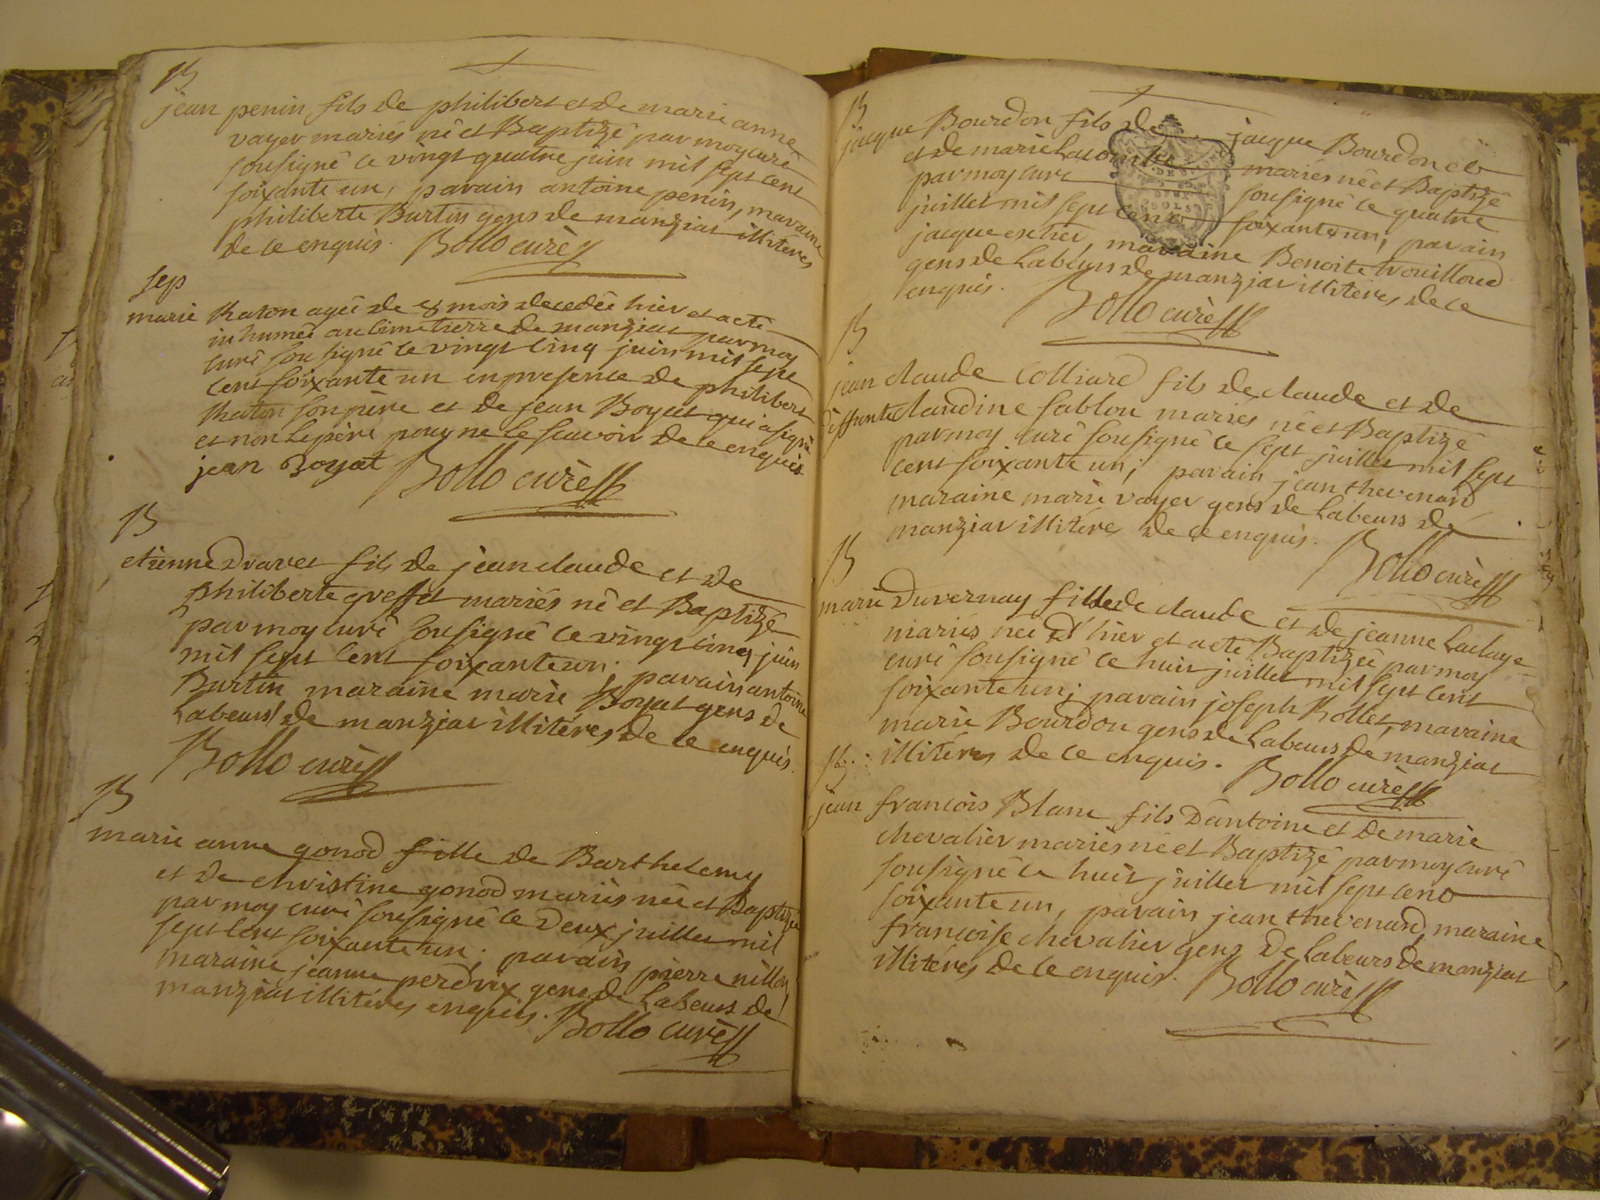 B
jean penin fils de philibert et de marie anne
vayer mariés né et Baptizé par moy curé
sousigné le vingt quatre juin mil sept cent
soixante un, parain antoine penin, maraine
philiberte Burtin gens de manziat illiteres
de ce enquis. Bollo curé
sep
marie Raton agée de 8 mois decedée hier et a eté
inhumée au cimetierre de manziat par moy
curé sousigné le vingt cinq juin mil sept
cent soixante un en presence de philibert
Raton son père et de jean Boyat qui a signé
et non le père pour ne le scavoir de ce enquis
jean Boyat Bollo curé
B
etienne Dravet fils de jean claude et de
philiberte greffet mariés né et Baptizé
par moy curé sousigné le vingt cinq juin
mil sept cent soixante un; parain antoine
Burtin maraine marie Boyat gens de
Labeurs de manziat illitéres de ce enquis.
Bollo curé
B
marie anne gonod fille de Barthelemy
et de christine gonod mariés née et Baptizée
par moy curé sousigné le Deux juillet mil
sept cent soixante un; parain pierre nillon,
maraine jeanne perdrix gens de Labeurs de
manziat illitéres enquis. Bollo curé
B
jacque Bourdon fils de jacque Bourdon
et de marie Lacombe mariés né et Baptizé
par moy curé sousigné le quatre
juillet mil sept cent soixante un, parain
jacque maraine Benoite vouilloud
gens de Labeurs de manziat illitéres de ce
enquis. Bollo curé
B
jean claude Colliard fils de claude et de
claudine sablon mariés né et Baptizé
par moy curé sousigné le sept juillet mil sept
cent soixante un; parain jean thevenard
maraine marie vayer gens de Labeurs de
manziat illitére de ce enquis.
Bollo curé
B
marie Duvernay fille de claude et de jeanne
mariés née d'hier et a eté Baptizée par moy
curé sousigné le huit juillet mil sept cent
soixante un; parain joseph Rollet, maraine
marie Bourdon gens de Labeurs de manziat
illitéres de ce enquis. Bollo curé
B
jean francois Blanc fils D'antoine et de marie
chevalier mariés né et Baptizé par moy curé
sousigné le huit juillet mil sept cent
soixante un, parain jean thevenard, maraine
francoise chevalier gens de Labeurs de manziat
illitéres de ce enquis. Bollo curé